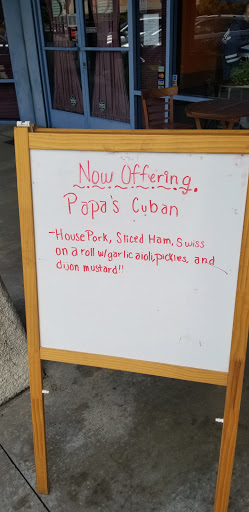 Now Offering.
Papa's Cuban
-House Pork, Sliced Ham, Swiss
on a roll w/garlic aioli, pickles, and
dijon mustard!!